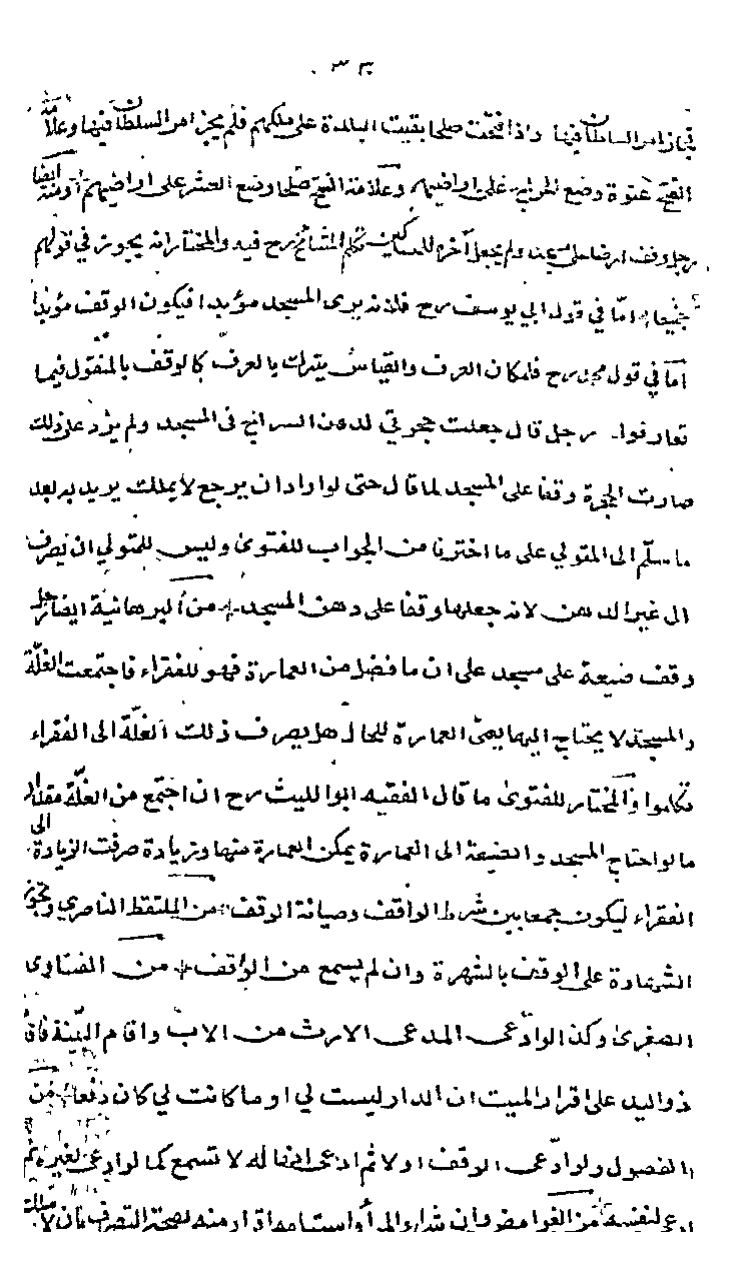 ٣٣
فيجاز امر السلطان فيها واذا فتحت صلحا بقيت البلدة على ملكهم فلم يجز امر السلطان فيها وعلامة
الفتح عنوة وضع الخراج على اراضيهم وعلامة الفتح صلحا وضع العشر على اراضيهم ومنه ايضا
رجل وقف ارضا على مسجد ولم يجعل آخره للمساكين تكلم المشائخ رح فيه والمختار انه يجوز في قولهم
جميعا اما في قول ابي يوسف رح فلانه يرى المسجد مؤبدا فيكون الوقف مؤبدا
اما في قول محمد رح فلمكان العرف والقياس يترك بالعرف كالوقف بالمنقول فيما
تعارفوا رجل قال جعلت حجرتي لدهن السراج في المسجد ولم يزد على ذلك
صارت الحجرة وقفا على المسجد لما قال حتى لو اراد ان يرجع لا يملك يريد به بعد
ما سلم الى المتولي على ما اخترنا من الجواب للفتوى وليس للمتولي ان يصرف
الى غير الدهن لانه جعلها وقفا على دهن المسجد من البرهانية ايضا رجل
وقف ضيعة على مسجد على ان ما فضل من العمارة فهو للفقراء فاجتمعت الغلّة
والمسجد لا يحتاج اليها يعني العمارة للحال هل يصرف ذلك الغلّة الى الفقراء
تكلموا والمختار للفتوى ما قال الفقيه ابو الليث رح ان اجتمع من الغلّة مقدار
ما لو احتاج المسجد والضيعة الى العمارة يمكن العمارة منها وزيادة صرفت الزيادة الى
الفقراء ليكون جمعا بين شرط الواقف وصيانة الوقف من الملتقط الناصري وتجوز
الشهادة على الوقف بالشهرة وان لم يسمع من الواقف من الفتاوى
الصغرى وكذا لو ادّعى المدعى الارث من الاب واقام البيّنة فاقام
ذو اليد على اقرار الميت ان الدار ليست لي او ما كانت لي كان دفعا من
الفصول ولو ادّعى الوقف اولا ثم ادعى انها له لا تسمع كما لو ادعى لغيره ثم
ادعى لنفسه من الغوامض وان شراء المرأ واستيامه اقرار منه لصحة التصرف بان لا